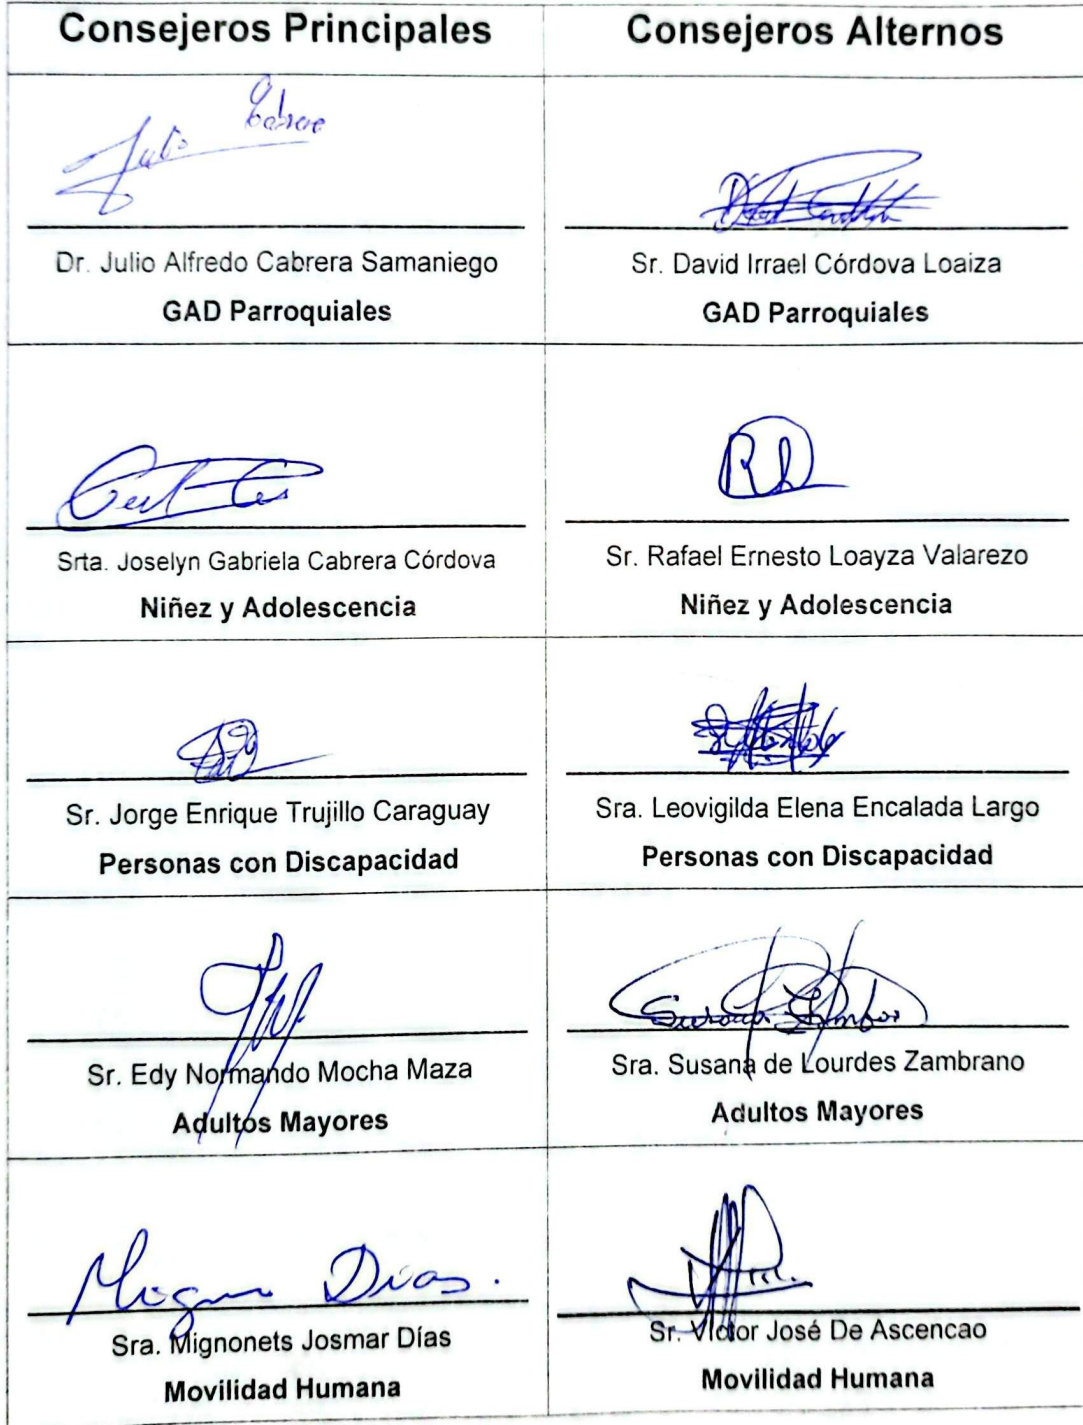 Consejeros Principales
Consejeros Alternos
Julio Cabrera
Dr. Julio Alfredo Cabrera Samaniego
GAD Parroquiales
Sr. David Irrael Córdova Loaiza
GAD Parroquiales
Srta. Joselyn Gabriela Cabrera Córdova
Niñez y Adolescencia
Sr. Rafael Ernesto Loayza Valarezo
Niñez y Adolescencia
Sr. Jorge Enrique Trujillo Caraguay
Personas con Discapacidad
Sra. Leovigilda Elena Encalada Largo
Personas con Discapacidad
Sr. Edy Normando Mocha Maza
Adultos Mayores
Sra. Susana de Lourdes Zambrano
Adultos Mayores
Días.
Sra. Mignonets Josmar Días
Movilidad Humana
Sr. Víctor José De Ascencao
Movilidad Humana